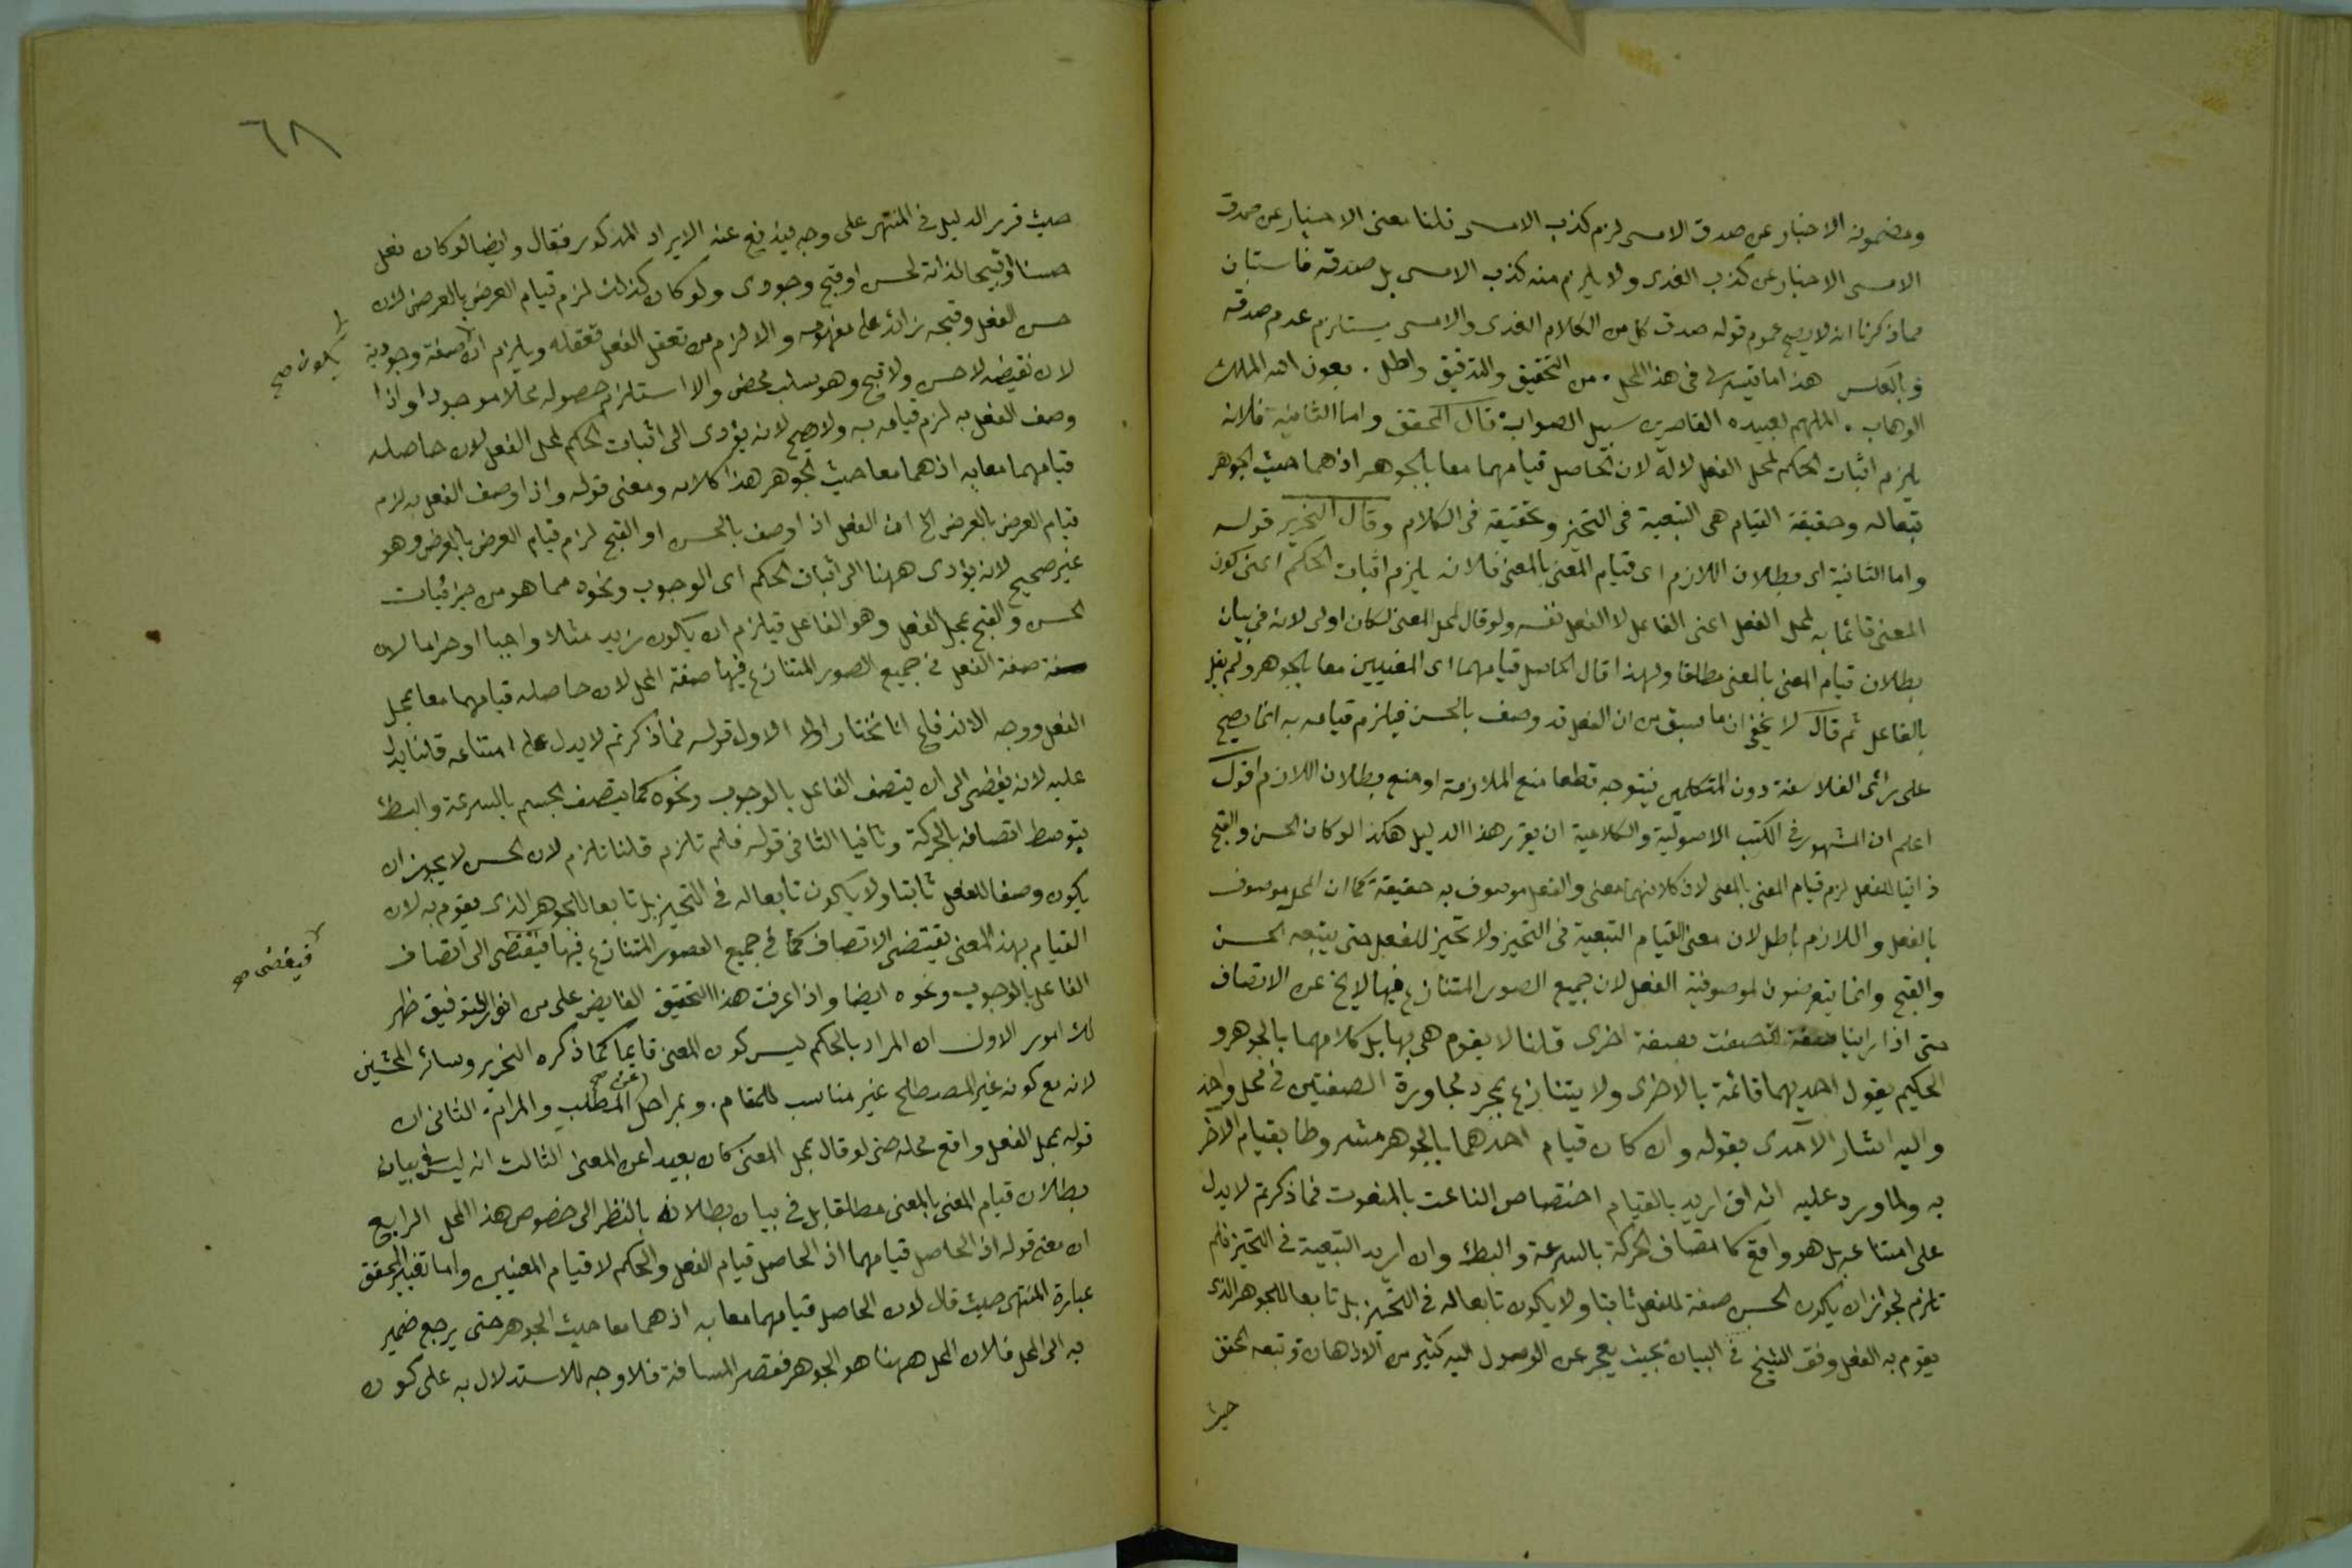 ومضمونه الاخبار عن صدق الامسى لزم كذب الامسى قلنا معنى الاخبار عن صدق
الامسى الاخبار عن كذب الغدى ولا يلزم منه كذب الامسى بل صدقه فاستبان
مما ذكرنا انه لا يصح عموم قوله صدق كل من الكلام الغدى والامسى يستلزم عدم صدقه
وبالعكس هذا ما تيسر لى فى هذا المحل . من التحقيق والتدقيق واطل . بعون الله الملك
الوهاب . الملهم لعبيده القاصرين سبيل الصواب قال المحقق واما الثانية فلانه
يلزم اثبات الحكم لمحل الفعل لا له لان الحاصل قيامهما معا بالجوهر اذ هما حيث الجوهر
تبعا له وحقيقة القيام هى التبعية فى التحيز وتحقيقه فى الكلام وقال النحرير قوله
واما الثانية اى بطلان اللازم اى قيام المعنى بالمعنى فلانه يلزم اثبات الحكم اعنى كون
المعنى قائما به لمحل الفعل اعنى الفاعل لا الفعل نفسه ولو قال لمحل المعنى لكان اولى لانه فى بيان
بطلان قيام المعنى بالمعنى مطلقا ولهذا قال الحاصل قيامهما اى المعنيين معا بالجوهر ولم يقل
بالفاعل ثم قال لا يخفى ان ما سبق من ان الفعل قد وصف بالحسن فيلزم قيامه به انما يصح
على راى الفلاسفة دون المتكلمين فيتوجه قطعا منع الملازمة او منع بطلان اللازم اقول
اعلم ان المشهور فى الكتب الاصولية والكلامية ان يقرر هذا الدليل هكذا لو كان الحسن والقبح
ذاتيا للفعل لزم قيام المعنى بالمعنى لان كلا منهما معنى والفعل موصوف به حقيقة كما ان المحل موصوف
بالفعل واللازم باطل لان معنى القيام التبعية فى التحيز ولا تحيز للفعل حتى يتبعه الحسن
والقبح وانما يتعرضون لموصوفية الفعل لان جميع الصور المتنازع فيها لا يخ عن الاتصاف
حتى اذا راينا صفة اتصفت بصفة اخرى قلنا لا يقوم هى بها بل كلاهما بالجوهر و
الحكيم يقول احديهما قائمة بالاخرى ولا يتنازع بمجرد مجاورة الصفتين فى محل واحد
واليه اشار الآمدى بقوله وان كان قيام احدهما بالجوهر مشروطا بقيام الآخر
به ولما ورد عليه انه ان اريد بالقيام اختصاص الناعت بالمنعوت فما ذكرتم لا يدل
على امتناعه بل هو واقع كاتصاف الحركة بالسرعة والبطء وان اريد التبعية فى التحيز فلم
تلزم لجواز ان يكون الحسن صفة للفعل ثابتا ولا يكون تابعا له فى التحيز بل تابعا للجوهر الذى
يقوم به الفعل وفق الشيخ فى البيان بحيث يعجز عن الوصول اليه كثير من الاذهان وتبعه المحقق
حيث
٦٨
حيث قرر الدليل فى المنتهى على وجه يندفع عنه الايراد المذكور فقال وايضا لو كان فعل
حسنا او قبيحا لذاته لحسن او قبح وجودى ولو كان كذلك لزم قيام العرض بالعرض لان
حسن الفعل وقبحه زائد على مفهومه والا لزم من تعقل الفعل تعقله ويلزم ان صفة وجودية
يكون صح
لان نقيضه لا حسن ولا قبح وهو سلب محض والا استلزم حصوله محلا موجودا واذا
وصف الفعل به لزم قيامه به ولا يصح لانه يؤدى الى اثبات الحكم لمحل الفعل لان حاصله
قيامهما معا به اذ هما معا حيث الجوهر هذا كلامه ومعنى قوله واذا وصف الفعل به لزم
قيام العرض بالعرض الخ ان الفعل اذا وصف بالحسن او القبح لزم قيام العرض بالعرض وهو
غير صحيح لانه يؤدى ههنا الى اثبات الحكم اى الوجوب ونحوه مما هو من جزئيات
الحسن والقبح بمحل الفعل وهو الفاعل فيلزم ان يكون زيد مثلا واجبا او حراما لان
صفة الفعل فى جميع الصور المتنازع فيها صفة المحل لان حاصله قيامهما معا بمحل
الفعل ووجه الاندفاع انا نختار اولا الاول قوله فما ذكرتم لا يدل على امتناعه قلنا يدل
عليه لانه يفضى الى ان يتصف الفاعل بالوجوب ونحوه كما يتصف الجسم بالسرعة والبطئ
بتوسط اتصافه بالحركة وثانيا الثانى قوله فلم تلزم قلنا تلزم لان الحسن لا يجوز ان
يكون وصفا للفعل ثابتا ولا يكون تابعا له فى التحيز بل تابعا للجوهر الذى يقوم به لان
القيام بهذا المعنى يقتضى الاتصاف كما فى جميع الصور المتنازع فيها فيقتضى الى اتصاف
فيفضى صح
الفاعل بالوجوب ونحوه ايضا واذا عرفت هذا التحقيق الفايض على من انوار التوفيق ظهر
لك امور الاول ان المراد بالحكم ليس كون المعنى قايما كما ذكره النحرير وسائر المحشين
لانه مع كونه غير المصطلح غير مناسب للمقام . وبمراحل عن صح المطلب والمرام الثانى ان
قوله بمحل الفعل واقع محله حتى لو قال بمحل المعنى كان بعيدا عن المعنى الثالث انه ليس فى بيان
بطلان قيام المعنى بالمعنى مطلقا بل فى بيان بطلانه بالنظر الى خصوص هذا المحل الرابع
ان معنى قوله اذ الحاصل قيامهما اذ الحاصل قيام الفعل والحكم لا قيام المعنيين واما تغيير المحقق
عبارة المنتهى حيث قال لان الحاصل قيامهما معا به اذ هما معا حيث الجوهر حتى يرجع ضمير
به الى المحل فلان المحل ههنا هو الجوهر فقصر المسافة فلا وجه للاستدلال به على كون